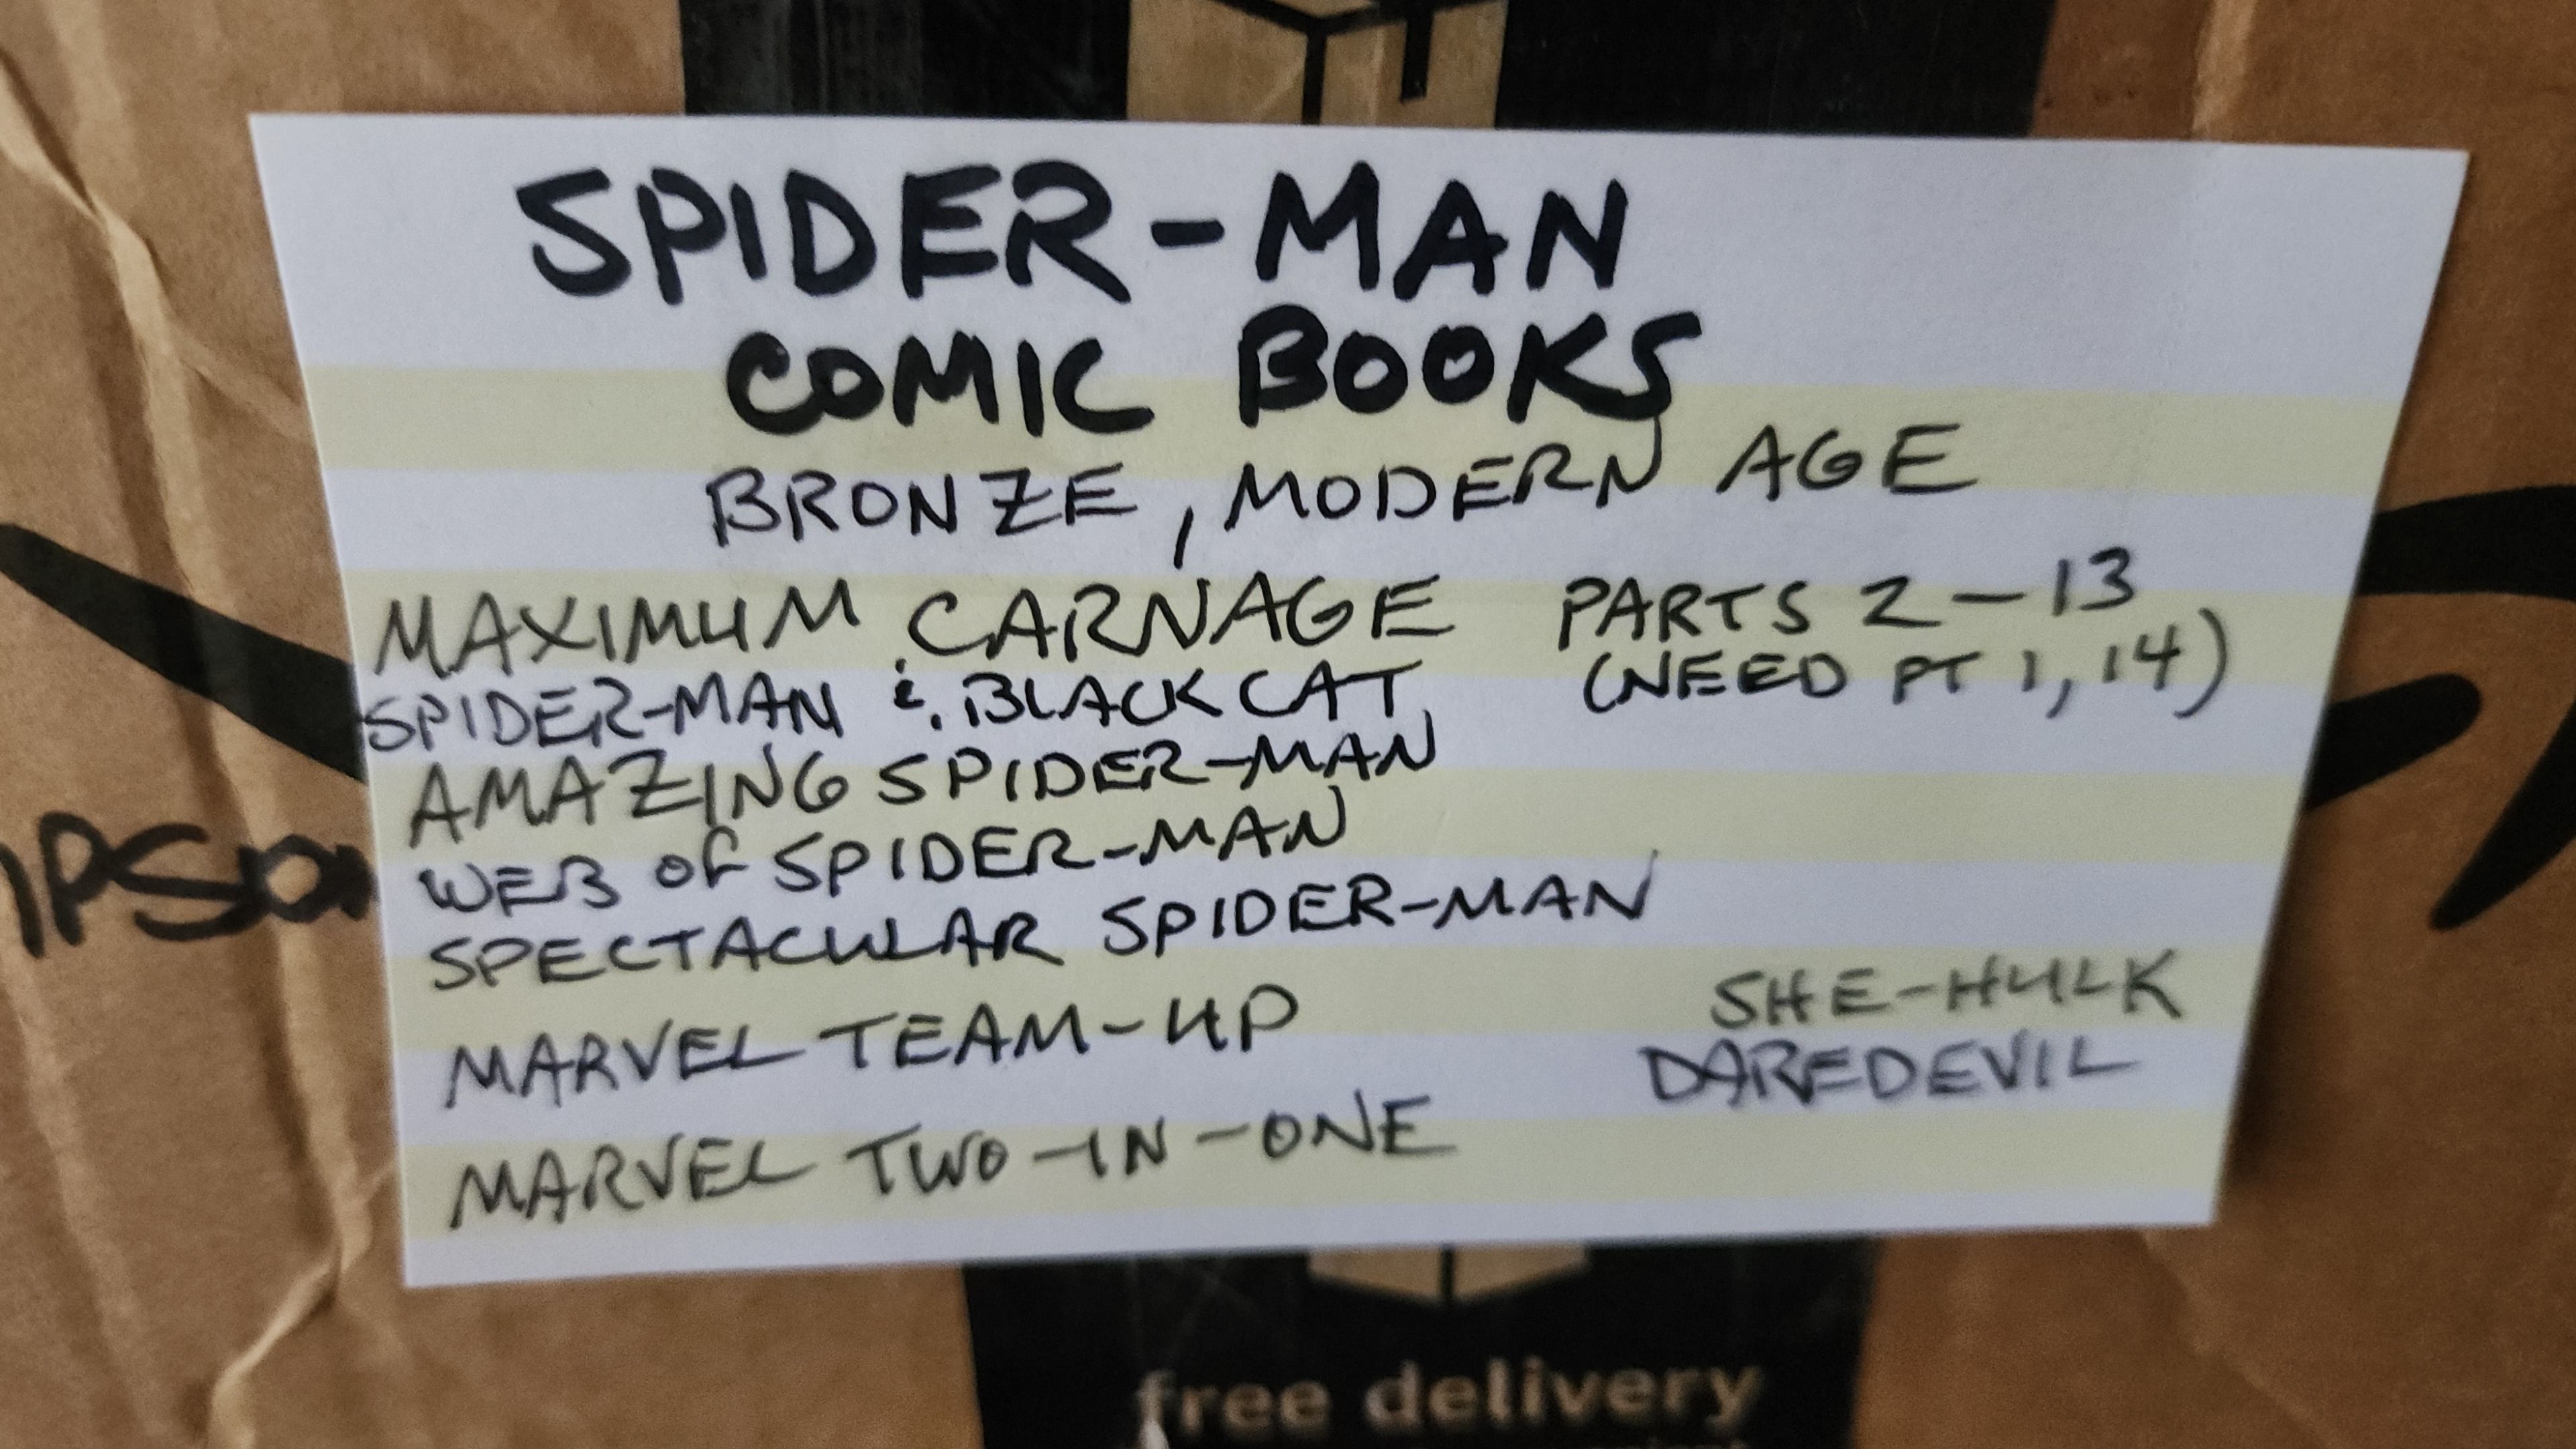 SPIDER-MAN
COMIC BOOKS
BRONZE, MODERN AGE
MAXIMUM CARNAGE PARTS 2-13
(NEED PT 1, 14)
SPIDER-MAN & BLACK CAT
AMAZING SPIDER-MAN
WEB OF SPIDER-MAN
SPECTACULAR SPIDER-MAN
MARVEL TEAM-UP
SHE-HULK
DAREDEVIL
MARVEL TWO-IN-ONE
free delivery